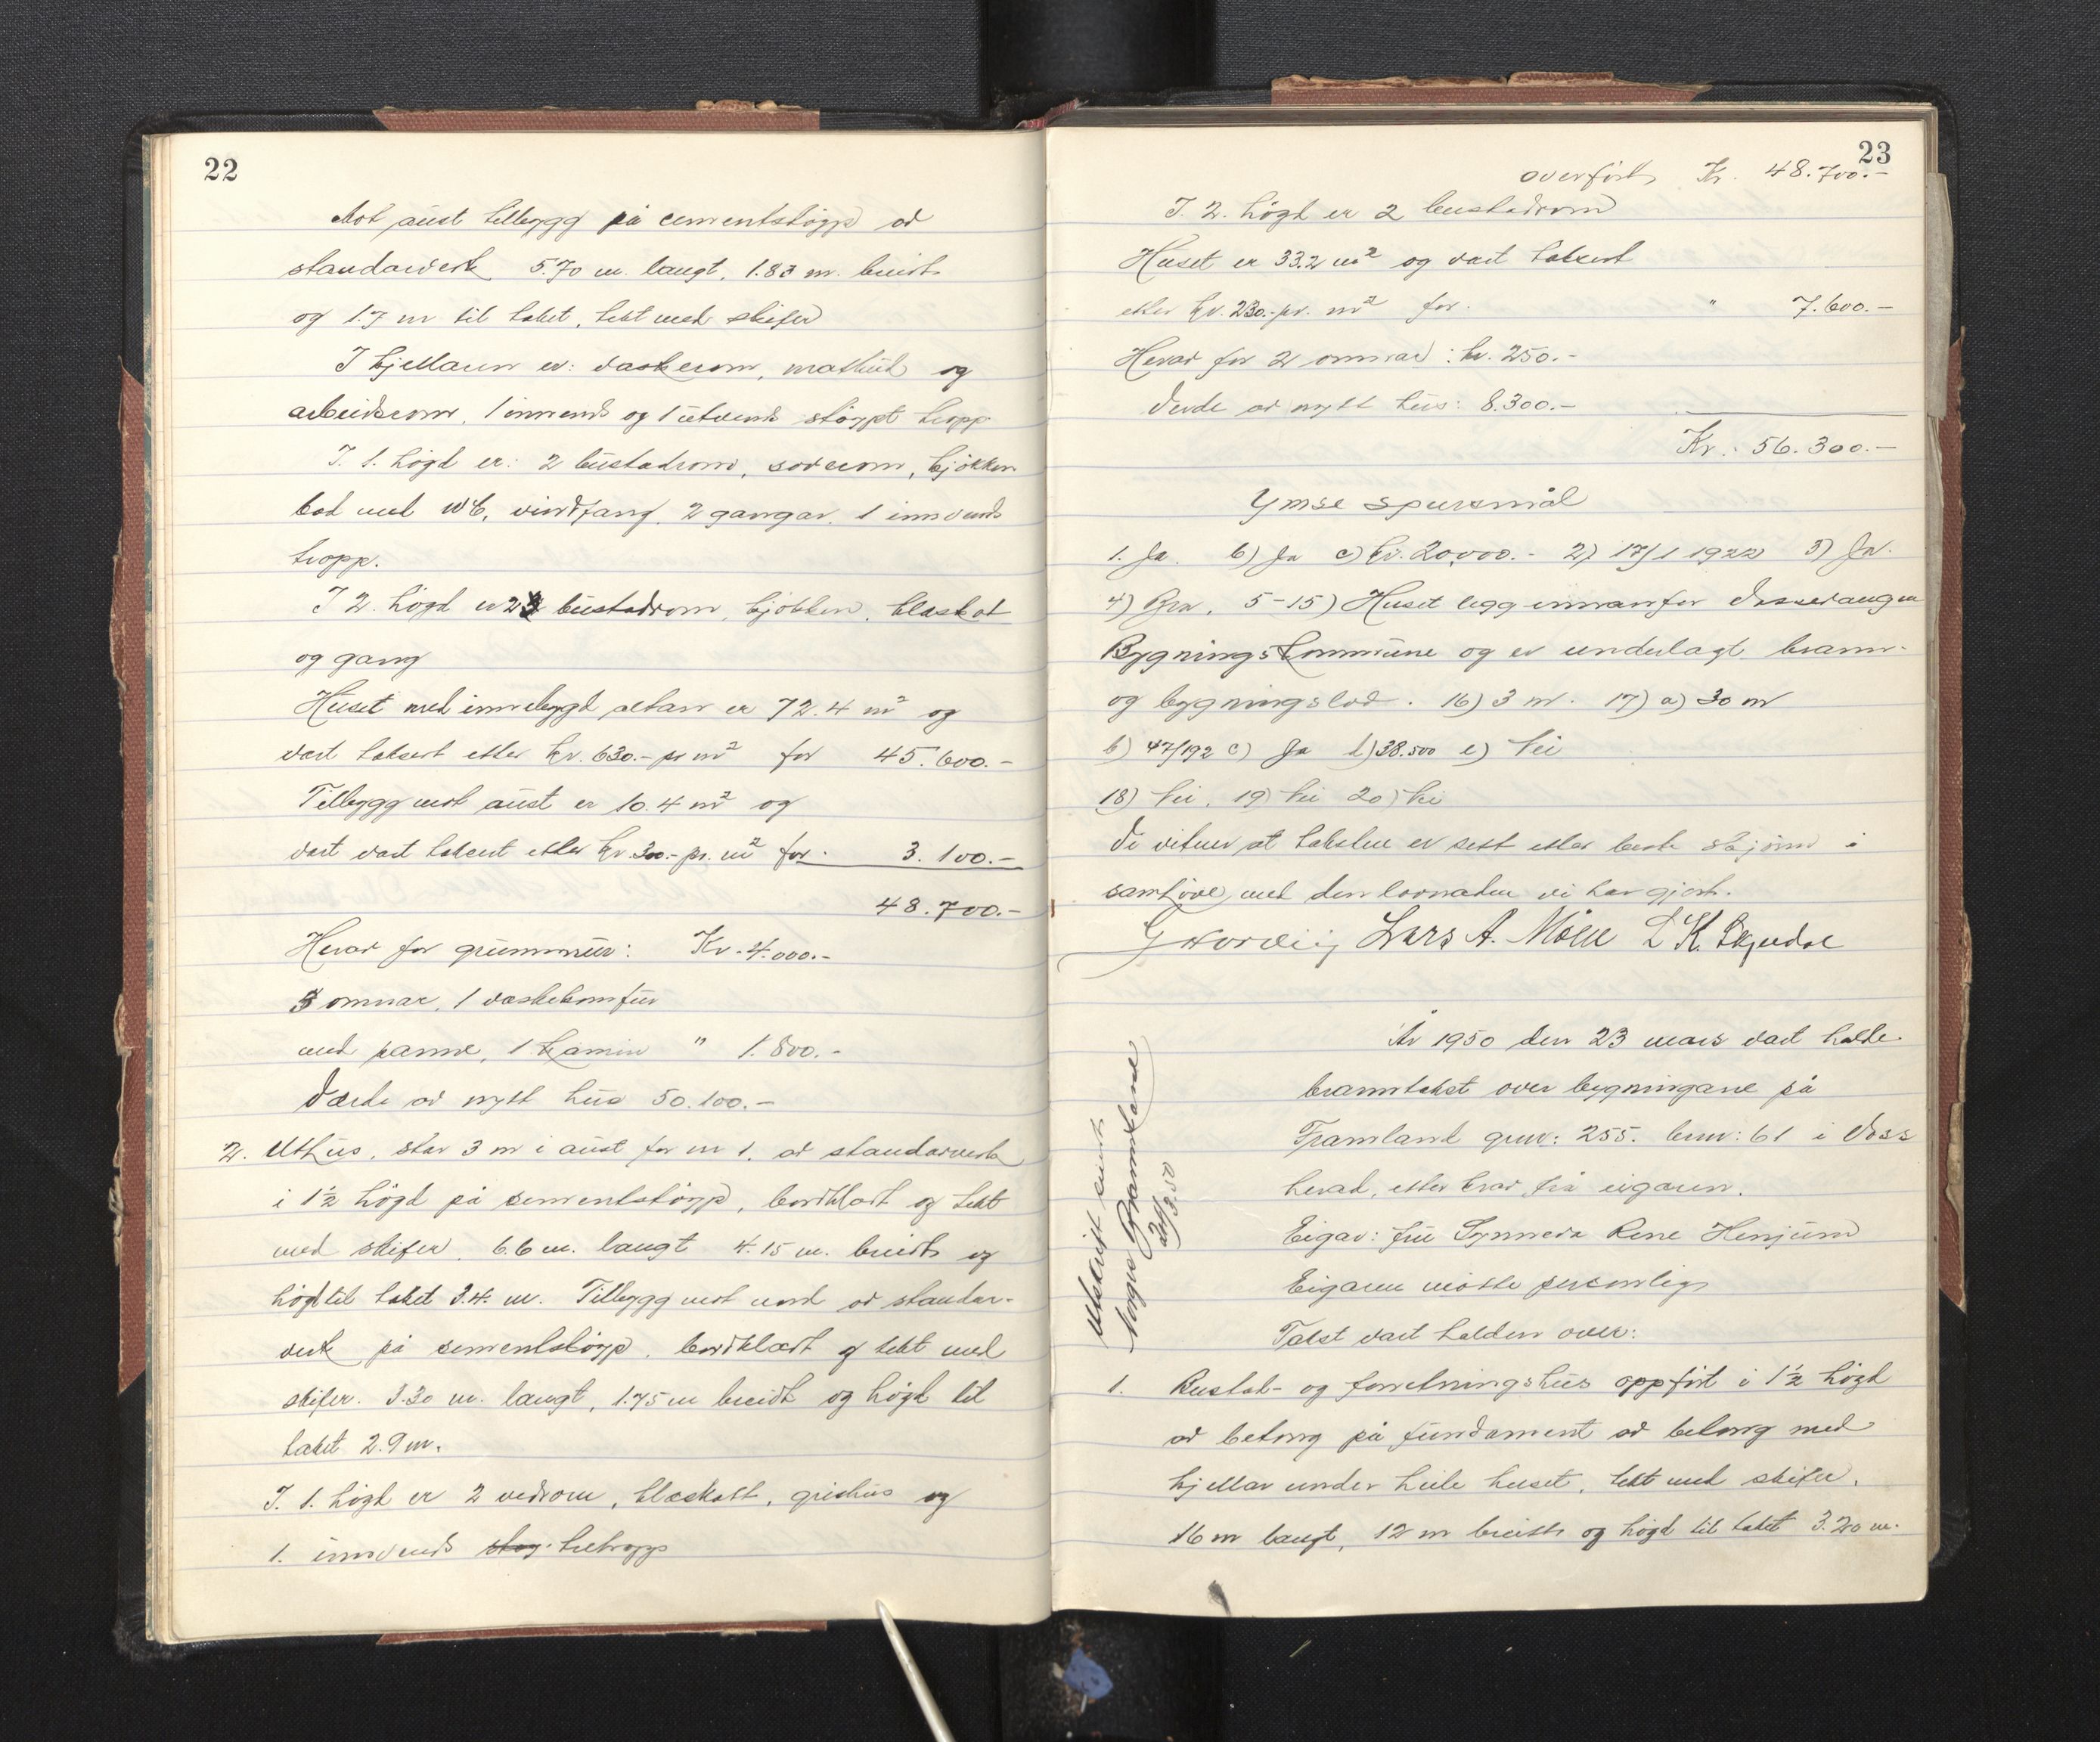 22
Mot aust tilbygg på cementstöypt av
standarverk 5.70 m. langt, 1.83 m. breidt
og 1.7 m til taket, tekt med skifer
I kjellaren er: vaskerom, matbud og
arbeidsrom, 1 innvends og 1 utvends stöypt tropp
I. 1. högd er: 2 bustadrom, soverom, kjökken
bad med WC, vindfang, 2 gangar, 1 innvends
tropp.
I 2. högd er 2 bustadrom, kjökken, kleskot
og gang
Huset med innebygd altan er 72.4 m² og
vart taksert etter kr. 630.- pr m² for 45.600.-
Tilbygg mot aust er 10.4 m² og
vart vart taksert etter kr. 300.- pr. m² for. 3.100.-
48.700.-
Herav for grunnmur: Kr. 4.000.-
5 omnar, 1 vaskekomfur
med panne, 1 kamin " 1.800.-
Verde av nytt hus 50.100.-
2. Uthus, står 3 m i aust for nr 1. av standarverk
i 1½ högd på sementstöypt, bordklædt og tekt
med skifer. 6.6 m. langt 4.15 m. breidt og
högd til taket 3.4. m. Tilbygg mot nord av standar-
verk på sementstöypt, bordklædt og tekt med
skifer. 3.30 m. langt, 1.75 m breidt og högd til
taket 2.9 m.
I. 1. högd er 2 vedrom, kleskott, grishus og
1. innvends tretropp
23
overfört Kr. 48.700.-
I. 2. högd er 2 bustadrom
Huset er 33.2 m² og vart taksert
etter kr. 230.- pr. m² for. " 7.600.-
Herav for 2 omnar: kr. 250.-
Verde av nytt hus: 8.300.-
Kr. 56.300.-
Ymse spursmål
1. Ja. b) Ja c) kr. 20.000.- 2) 17/1 1922 3) Ja.
4) Bra. 5-15) Huset ligg innanfor Vossevangen
Bygningskommune og er underlagt brann-
og bygningslov. 16) 3 m. 17) a) 30 m
b) 47/192 c) Ja d) 38.500 e) Nei
18) Nei. 19) Nei 20) Nei
Vi vitner at taksten er sett etter beste skjönn i
samhöve med den lovnaden vi har gjort.
G Nordvig Lars A. Möen L K. Skjerdal
År 1950 den 23 mars vart halde
branntakst over bygningane på
Framland gnr: 255. bnr: 61 i Voss
herad, etter krav frå eigaren.
Eigar: fru Synneva Rene Henjum
Eigaren mötte personlig
Takst vart halden over:
1. Bustad- og forretningshus oppfört i 1½ högd
av betong på fundament av betong med
kjellar under heile huset, tekt med skifer.
16 m langt, 12 m breidt og högd til taket 3.20 m.
Utskrift sendt
Norges Brannkasse
24/3.50